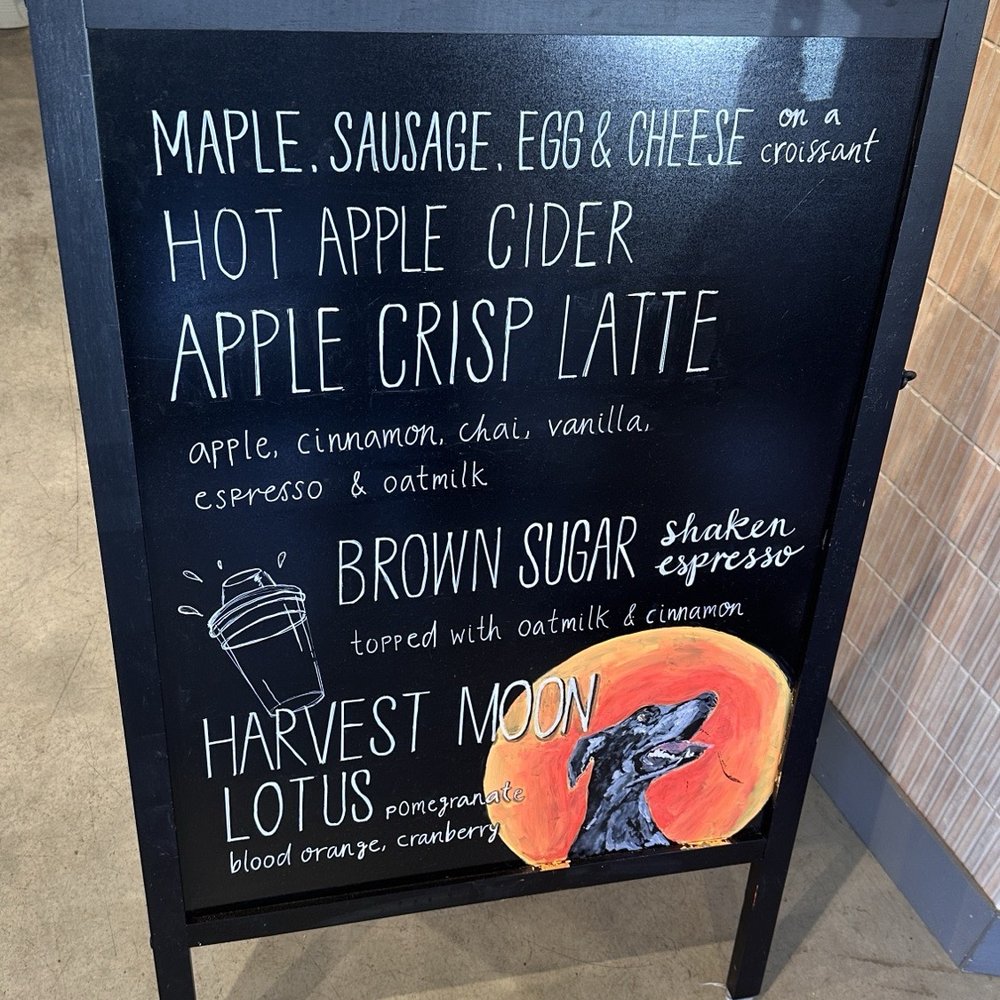 MAPLE, SAUSAGE, EGG & CHEESE on a croissant
HOT APPLE CIDER
APPLE CRISP LATTE
apple, cinnamon, chai, vanilla,
espresso & oatmilk
BROWN SUGAR shaken espresso
topped with oatmilk & cinnamon
HARVEST MOON
LOTUS pomegranate
blood orange, cranberry